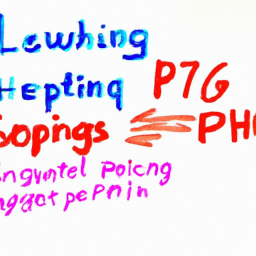 Lewhing
Hepting P7G
sopings PH
ingvntel Poicng
nggot pepnin